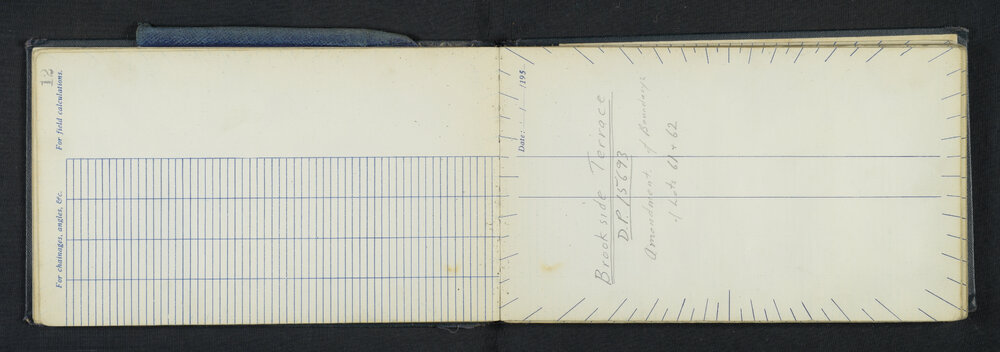 12
For field calculations.
For chainages, angles, &c.
Date: / /195
Brookside Terrace
D.P. 15693
Amendment of Boundary
of Lots 61 + 62